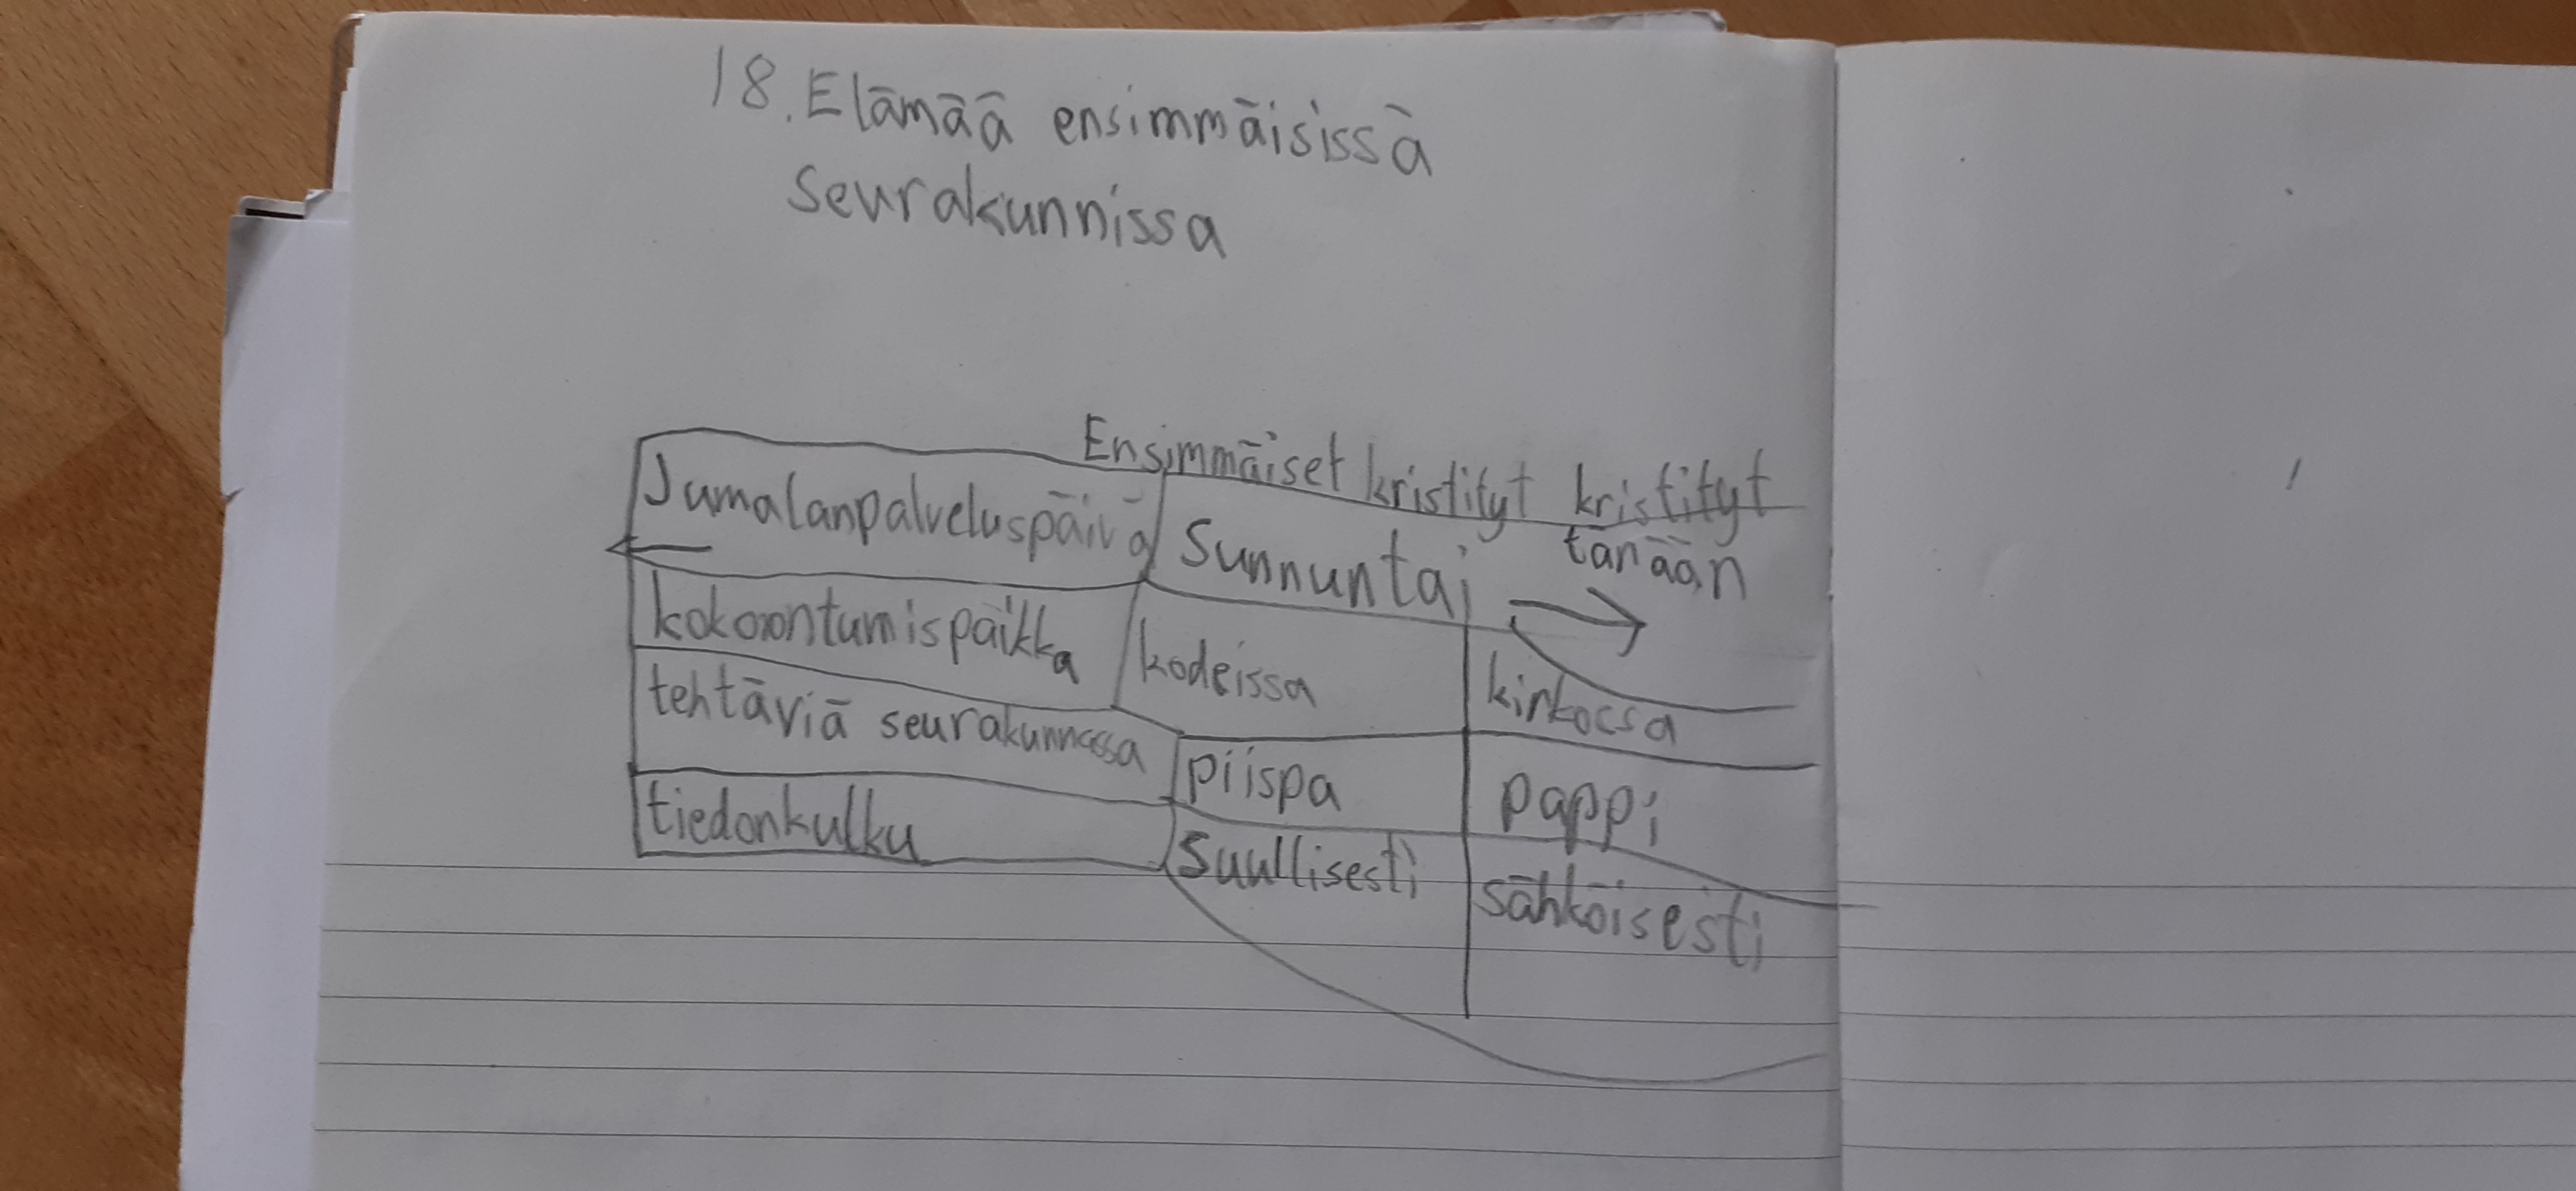 18. Elämää ensimmäisissä
seurakunnissa
Ensimmäiset kristityt kristityt
tänään
Jumalanpalveluspäivä Sunnuntai
kokoontumispaikka kodeissa kirkossa
tehtäviä seurakunnassa piispa pappi
tiedonkulku suullisesti sähköisesti